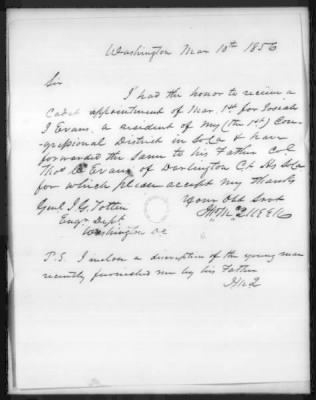 Washington Mar 10th 1856
Sir
I had the honor to receive a
Cadet appointment of Mar. 1st for Josiah
J Evans, a resident of my (the 1st) Con-
gressional District in So Ca & have
forwarded the same to his Father Col
Thos Evans of Darlington C.H. So Ca
for which please accept my thanks
Genl J. G. Totten
Your Obt Servt
Engr Dept
Washington DC
P.S. I enclose a description of the young man
recently furnished me by his Father